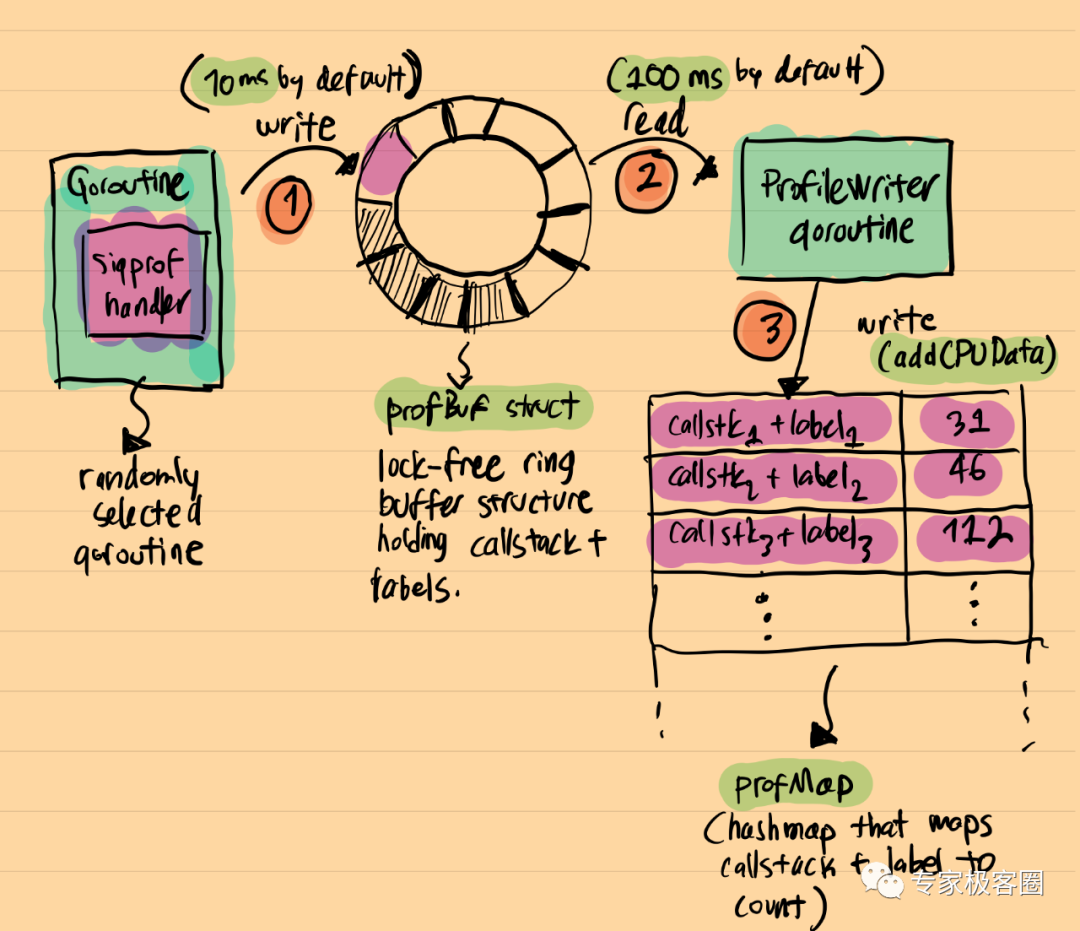 (10ms by default)
write
(100 ms by default)
read
Goroutine
sigprof
handler
1
2
ProfileWriter
goroutine
randomly
selected
goroutine
profBuf struct
lock-free ring
buffer structure
holding callstack +
labels.
3
write
(addCPUData)
callstk1 + label1 31
callstk2 + label2 46
callstk3 + label3 112
profMap
(hashmap that maps
callstack + label to
count)
专家极客圈